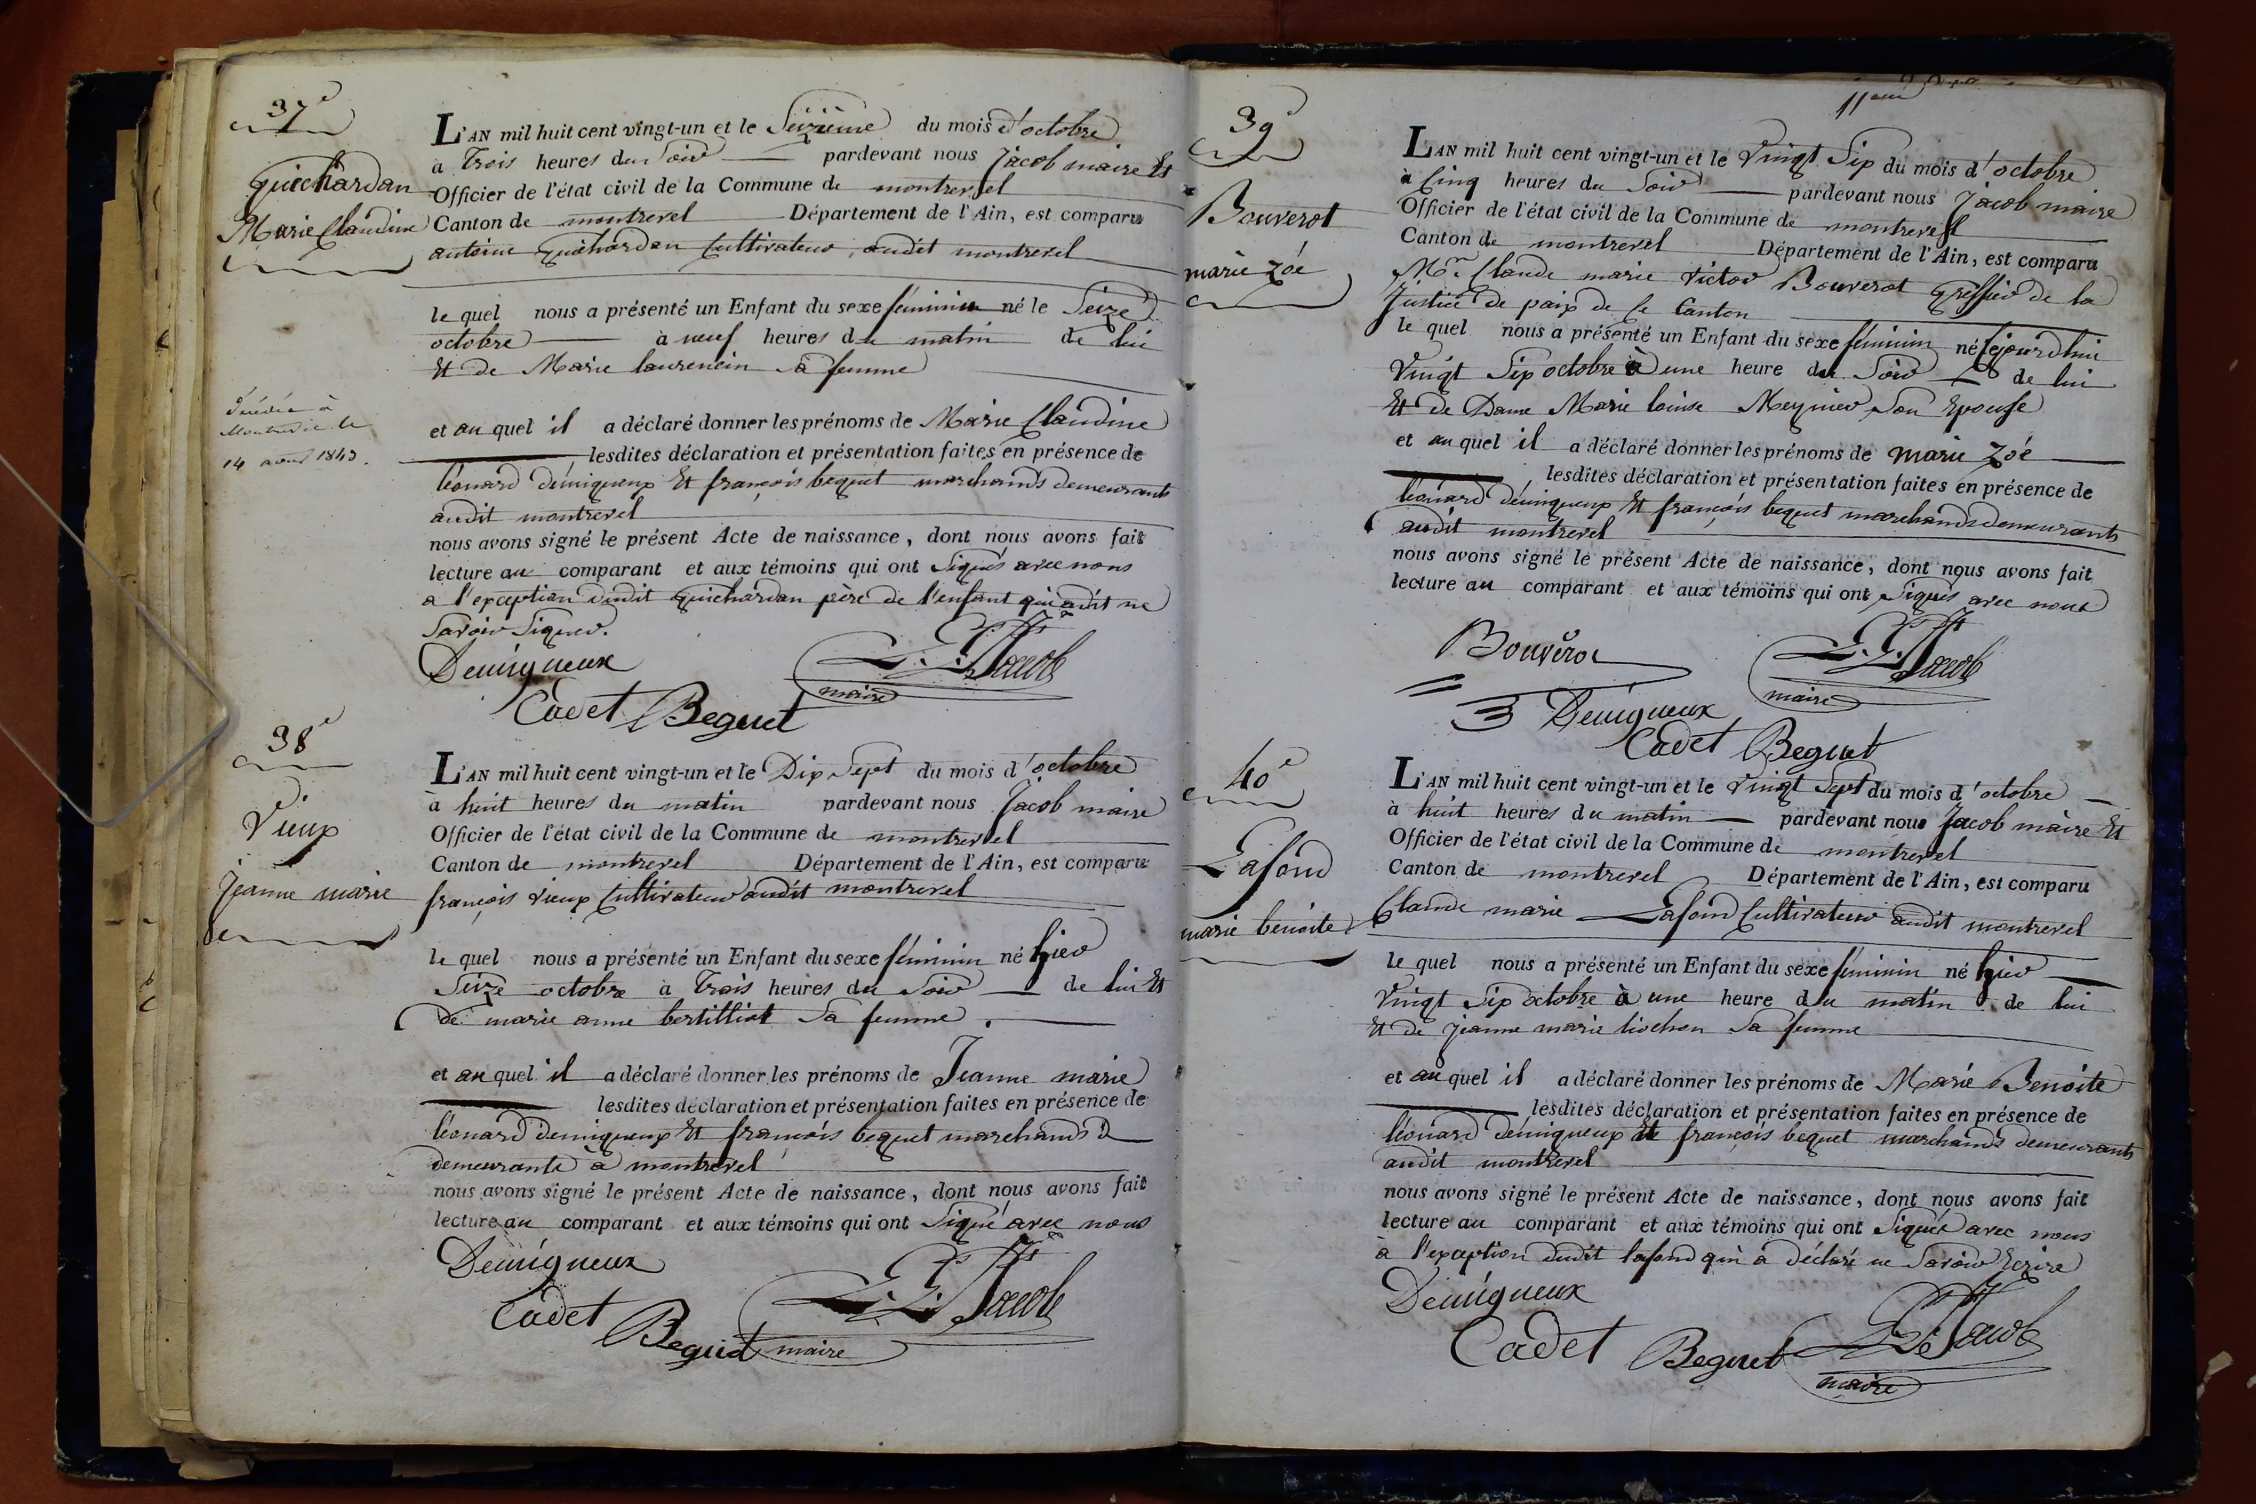 37e
Guichardan
Marie Claudine
L'AN mil huit cent vingt-un et le Seizieme du mois d'octobre
à Trois heures du Soir pardevant nous Jacob maire Et
Officier de l'état civil de la Commune de montrevel
Canton de montrevel Département de l'Ain, est comparu
antoine guichardan Cultivateur audit montrevel
le quel nous a présenté un Enfant du sexe féminin né le Seize
octobre à neuf heures du matin de lui
Et de Marie laurencin Sa femme
et au quel il a déclaré donner les prénoms de Marie Claudine
lesdites déclaration et présentation faites en présence de
léonard démigneux Et françois beguet marchands demeurants
audit montrevel
nous avons signé le présent Acte de naissance, dont nous avons fait
lecture au comparant et aux témoins qui ont Signés avec nous
a l'exception dudit guichardan père de l'enfant qui a dit ne
Savoir Signer.
Demigneux
Cadet Beguet
Jacob
maire
à
le
14 1843.
38e
Vieux
jeanne marie
L'AN mil huit cent vingt-un et le Dix Sept du mois d'octobre
à huit heures du matin pardevant nous Jacob maire
Officier de l'état civil de la Commune de montrevel
Canton de montrevel Département de l'Ain, est comparu
françois vieux Cultivateur audit montrevel
le quel nous a présenté un Enfant du sexe féminin né hier
Seize octobre à Trois heures du Soir de lui Et
de marie anne bertilliot Sa femme.
et au quel il a déclaré donner les prénoms de Jeanne marie
lesdites déclaration et présentation faites en présence de
léonard demigneux Et françois beguet marchands
demeurants à montrevel
nous avons signé le présent Acte de naissance, dont nous avons fait
lecture au comparant et aux témoins qui ont Signé avec nous
Demigneux
Cadet
Beguet
Jacob
maire
39e
Bouverot
marie zoé
L'AN mil huit cent vingt-un et le Vingt Six du mois d'octobre
à Cinq heures du Soir pardevant nous Jacob maire
Officier de l'état civil de la Commune de montrevel
Canton de montrevel Département de l'Ain, est comparu
Mr. Claude marie victor Bouverot greffier de la
Justice de paix de Ce Canton
le quel nous a présenté un Enfant du sexe féminin né Cejourdhui
Vingt Six octobre à une heure du Soir de lui
Et de Dame Marie louise Meynier Son Epouse
et au quel il a déclaré donner les prénoms de marie zoé
lesdites déclaration et présentation faites en présence de
léonard démigneux Et françois beguet marchands demeurants
audit montrevel
nous avons signé le présent Acte de naissance, dont nous avons fait
lecture au comparant et aux témoins qui ont Signés avec nous
Bouverot
Jacob
maire
Demigneux
Cadet Beguet
40e
Lafond
marie benoite
L'AN mil huit cent vingt-un et le Vingt Sept du mois d'octobre
à huit heures du matin pardevant nous Jacob maire Et
Officier de l'état civil de la Commune de montrevel
Canton de montrevel Département de l'Ain, est comparu
Claude marie Lafond Cultivateur audit montrevel
le quel nous a présenté un Enfant du sexe féminin né hier
Vingt Six octobre à une heure du matin de lui
Et de jeanne marie liochon Sa femme
et au quel il a déclaré donner les prénoms de Marie Benoite
lesdites déclaration et présentation faites en présence de
léonard démigneux Et françois beguet marchands demeurants
audit montrevel
nous avons signé le présent Acte de naissance, dont nous avons fait
lecture au comparant et aux témoins qui ont Signés avec nous
à l'exception dudit lafond qui a déclaré ne Savoir Ecrire
Demigneux
Cadet Beguet
Jacob
maire